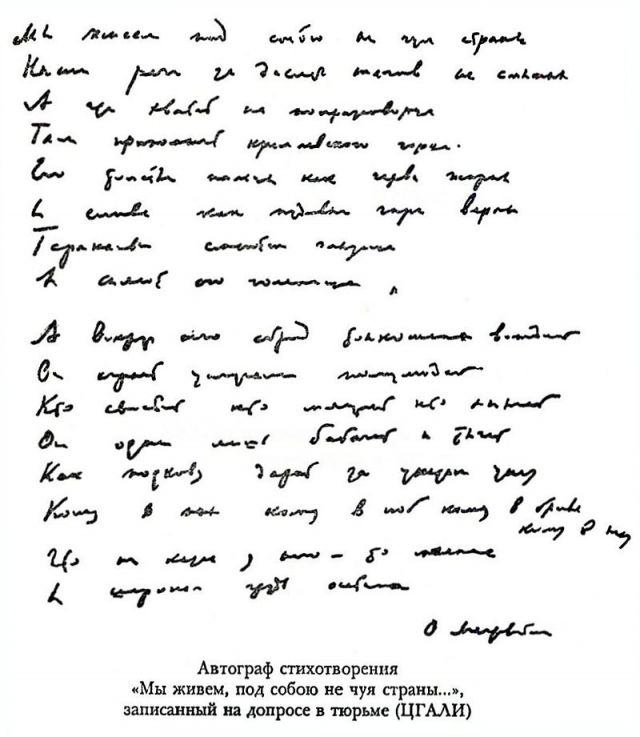 Мы живем под собою не чуя страны
Наши речи за десять шагов не слышны
А где хватит на полразговорца
Там припомнят кремлевского горца.
Его толстые пальцы как черви жирны
И слова как пудовые гири верны
Тараканьи смеются глазища
И сияют его голенища
А вокруг его сброд тонкошеих вождей
Он играет услугами полулюдей
Кто свистит кто мяучит кто хнычет
Он один лишь бабачит и тычет
Как подкову дарит за указом указ
Кому в пах кому в лоб кому в бровь
кому в глаз
Что ни казнь у него – то малина
И широкая грудь осетина
О Мандельштам
Автограф стихотворения
«Мы живем, под собою не чуя страны...»,
записанный на допросе в тюрьме (ЦГАЛИ)